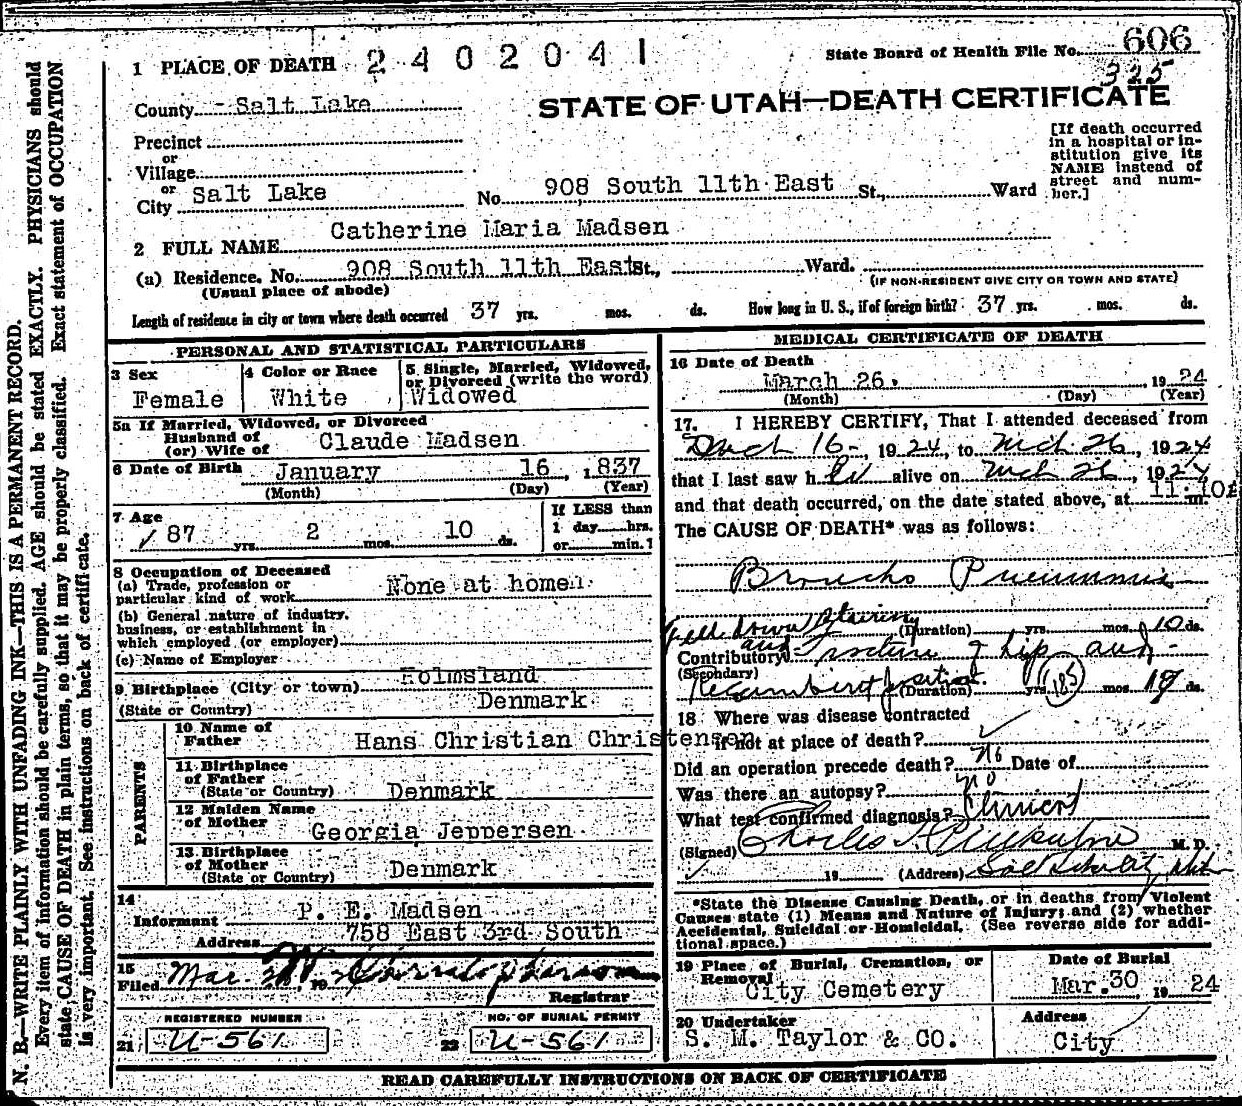 1 PLACE OF DEATH 2402041
State Board of Health File No. 606
325
County Salt Lake
STATE OF UTAH—DEATH CERTIFICATE
Precinct
or
Village
or
City Salt Lake No. 908 South 11th East St., Ward
[If death occurred in a hospital or in-
stitution give its
NAME instead of
street and num-
ber.]
2 FULL NAME Catherine Maria Madsen
(a) Residence. No. 908 South 11th East St., Ward.
(Usual place of abode)
(IF NON-RESIDENT GIVE CITY OR TOWN AND STATE)
Length of residence in city or town where death occurred 37 yrs. mos. ds. How long in U. S., if of foreign birth? 37 yrs. mos. ds.
PERSONAL AND STATISTICAL PARTICULARS
3 Sex
Female
4 Color or Race
White
5 Single, Married, Widowed,
or Divorced (write the word)
Widowed
5a If Married, Widowed, or Divorced
Husband of
(or) Wife of Claude Madsen
6 Date of Birth January 16, 1837
(Month) (Day) (Year)
7 Age
87 yrs. 2 mos. 10 ds.
If LESS than
1 day hrs.
or min.?
8 Occupation of Deceased
(a) Trade, profession or
particular kind of work None at home
(b) General nature of industry,
business, or establishment in
which employed (or employer)
(c) Name of Employer
9 Birthplace (City or town) Holmsland
(State or Country) Denmark
PARENTS
10 Name of
Father Hans Christian Christensen
11 Birthplace
of Father
(State or Country) Denmark
12 Maiden Name
of Mother
Georgia Jeppersen
13 Birthplace
of Mother
(State or Country) Denmark
14
Informant P. E. Madsen
Address 758 East 3rd South
15
Filed Mar. 19
Registrar
REGISTERED NUMBER
21 U-561
NO. OF BURIAL PERMIT
22 U-561
MEDICAL CERTIFICATE OF DEATH
16 Date of Death
March 26, 1924
(Month) (Day) (Year)
17. I HEREBY CERTIFY, That I attended deceased from
16, 1924, to Mch 26, 1924
that I last saw h er alive on Mch 26, 1924
and that death occurred, on the date stated above, at 11 m.
The CAUSE OF DEATH* was as follows:
Broncho Pneumonia
Fell down
(Duration) yrs. mos. 10 ds.
Contributory and Fracture of hip and
(Secondary)
Recumbent position.
(Duration) yrs. 185 mos. ds.
18 Where was disease contracted
if not at place of death?
Did an operation precede death? No Date of
Was there an autopsy? no
What test confirmed diagnosis?
(Signed) Charles M. D.
19 (Address) Salt Lake City, Utah
*State the Disease Causing Death, or in deaths from Violent
Causes state (1) Means and Nature of Injury; and (2) whether
Accidental, Suicidal or Homicidal. (See reverse side for addi-
tional space.)
19 Place of Burial, Cremation, or
Removal
City Cemetery
Date of Burial
Mar. 30 19 24
20 Undertaker
S. M. Taylor & CO.
Address
City
READ CAREFULLY INSTRUCTIONS ON BACK OF CERTIFICATE
N. B.—WRITE PLAINLY WITH UNFADING INK—THIS IS A PERMANENT RECORD.
Every item of information should be carefully supplied. AGE should be stated EXACTLY. PHYSICIANS should
state CAUSE OF DEATH in plain terms, so that it may be properly classified. Exact statement of OCCUPATION
is very important. See instructions on back of certificate.